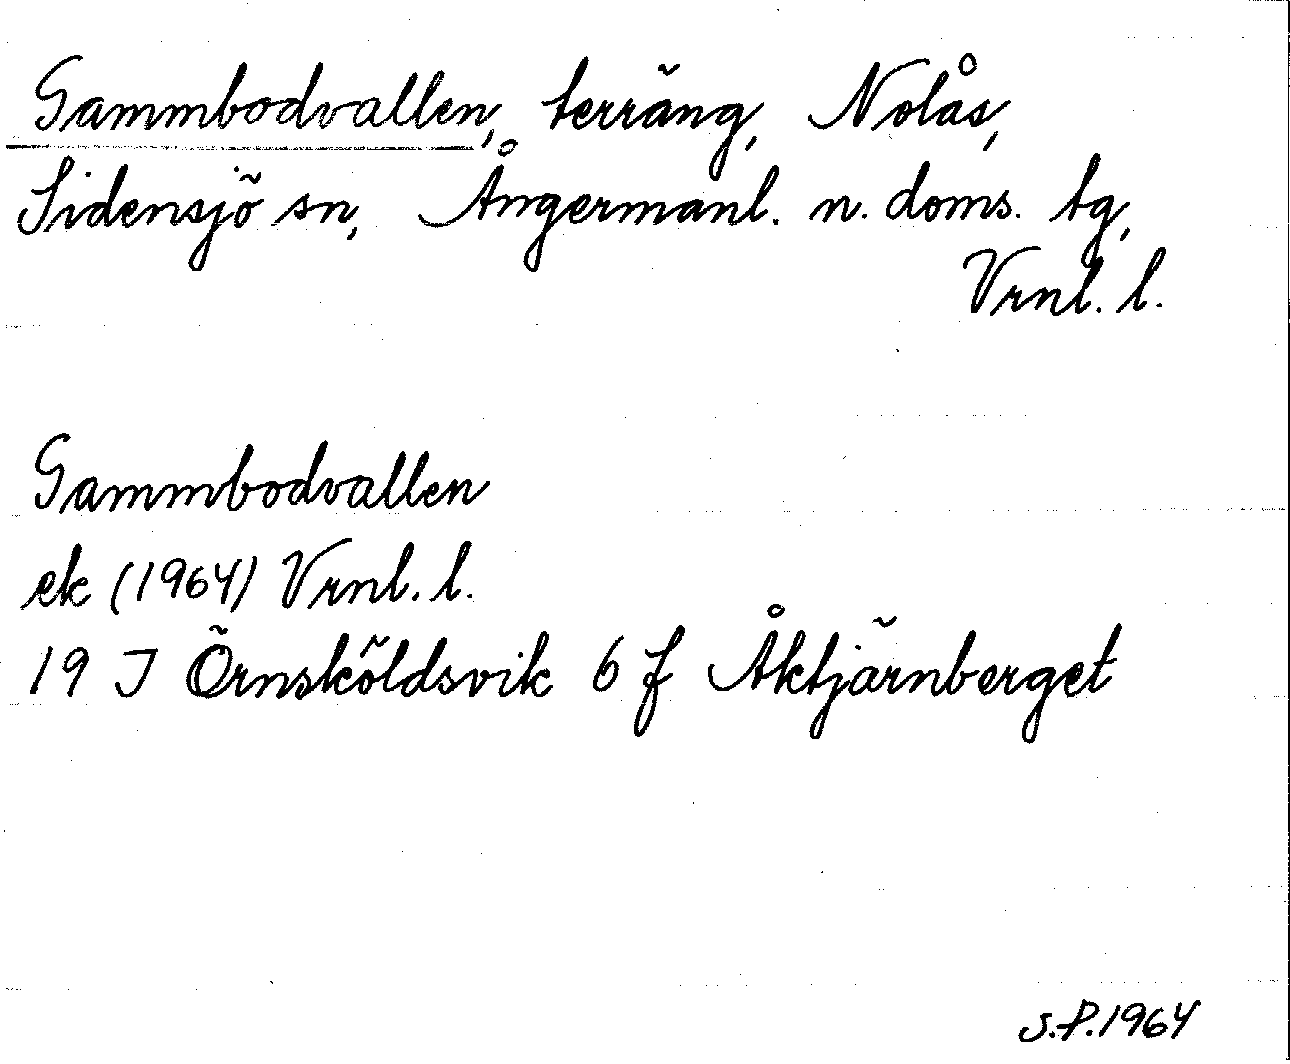 Gammbodvallen, terräng, Nolås,
Sidensjö sn, Ångermanl. n. doms. tg,
Vrnl. l.
Gammbodvallen
ek (1964) Vrnl. l.
19 J Örnsköldsvik 6 f Åktjärnberget
S.P. 1964